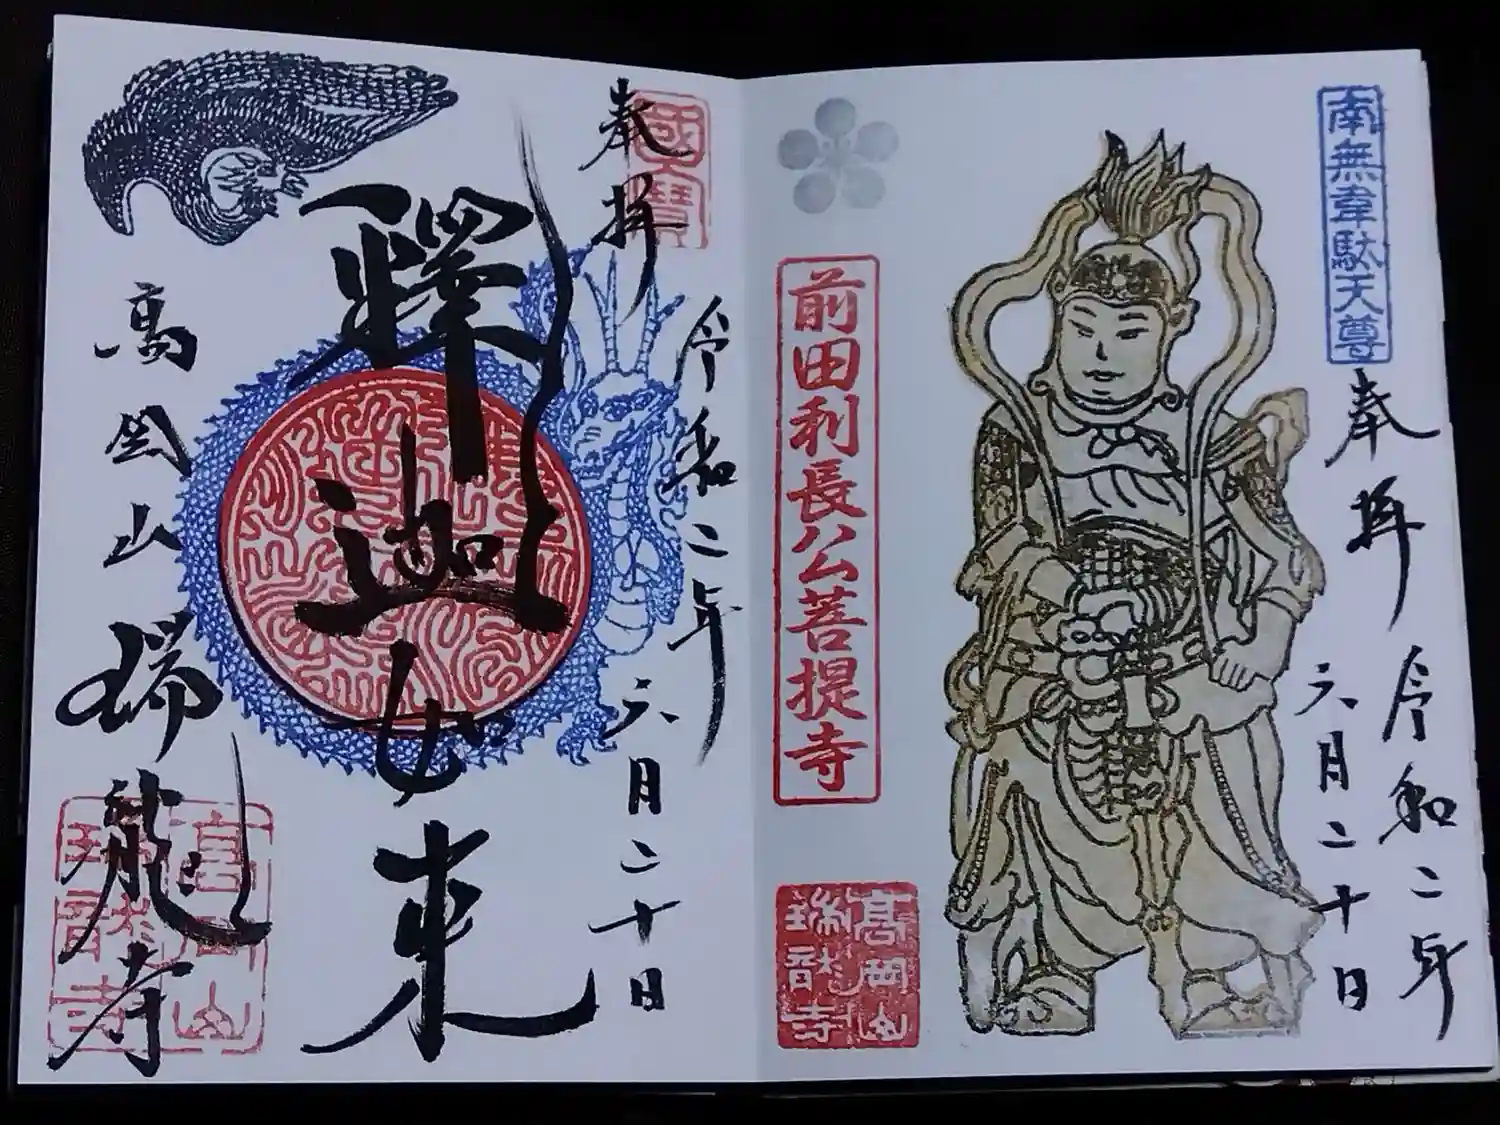 南無韋駄天尊
奉拝
令和二年
六月二十日
前田利長公菩提寺
高岡山
瑞龍寺
國寶
奉拝
令和二年
六月二十日
釋迦如来
高岡山瑞龍寺
高岡山
瑞龍寺